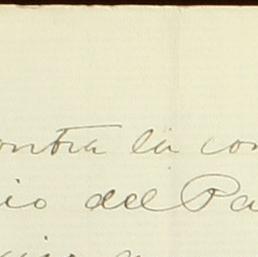 ontra la con
io del Pa